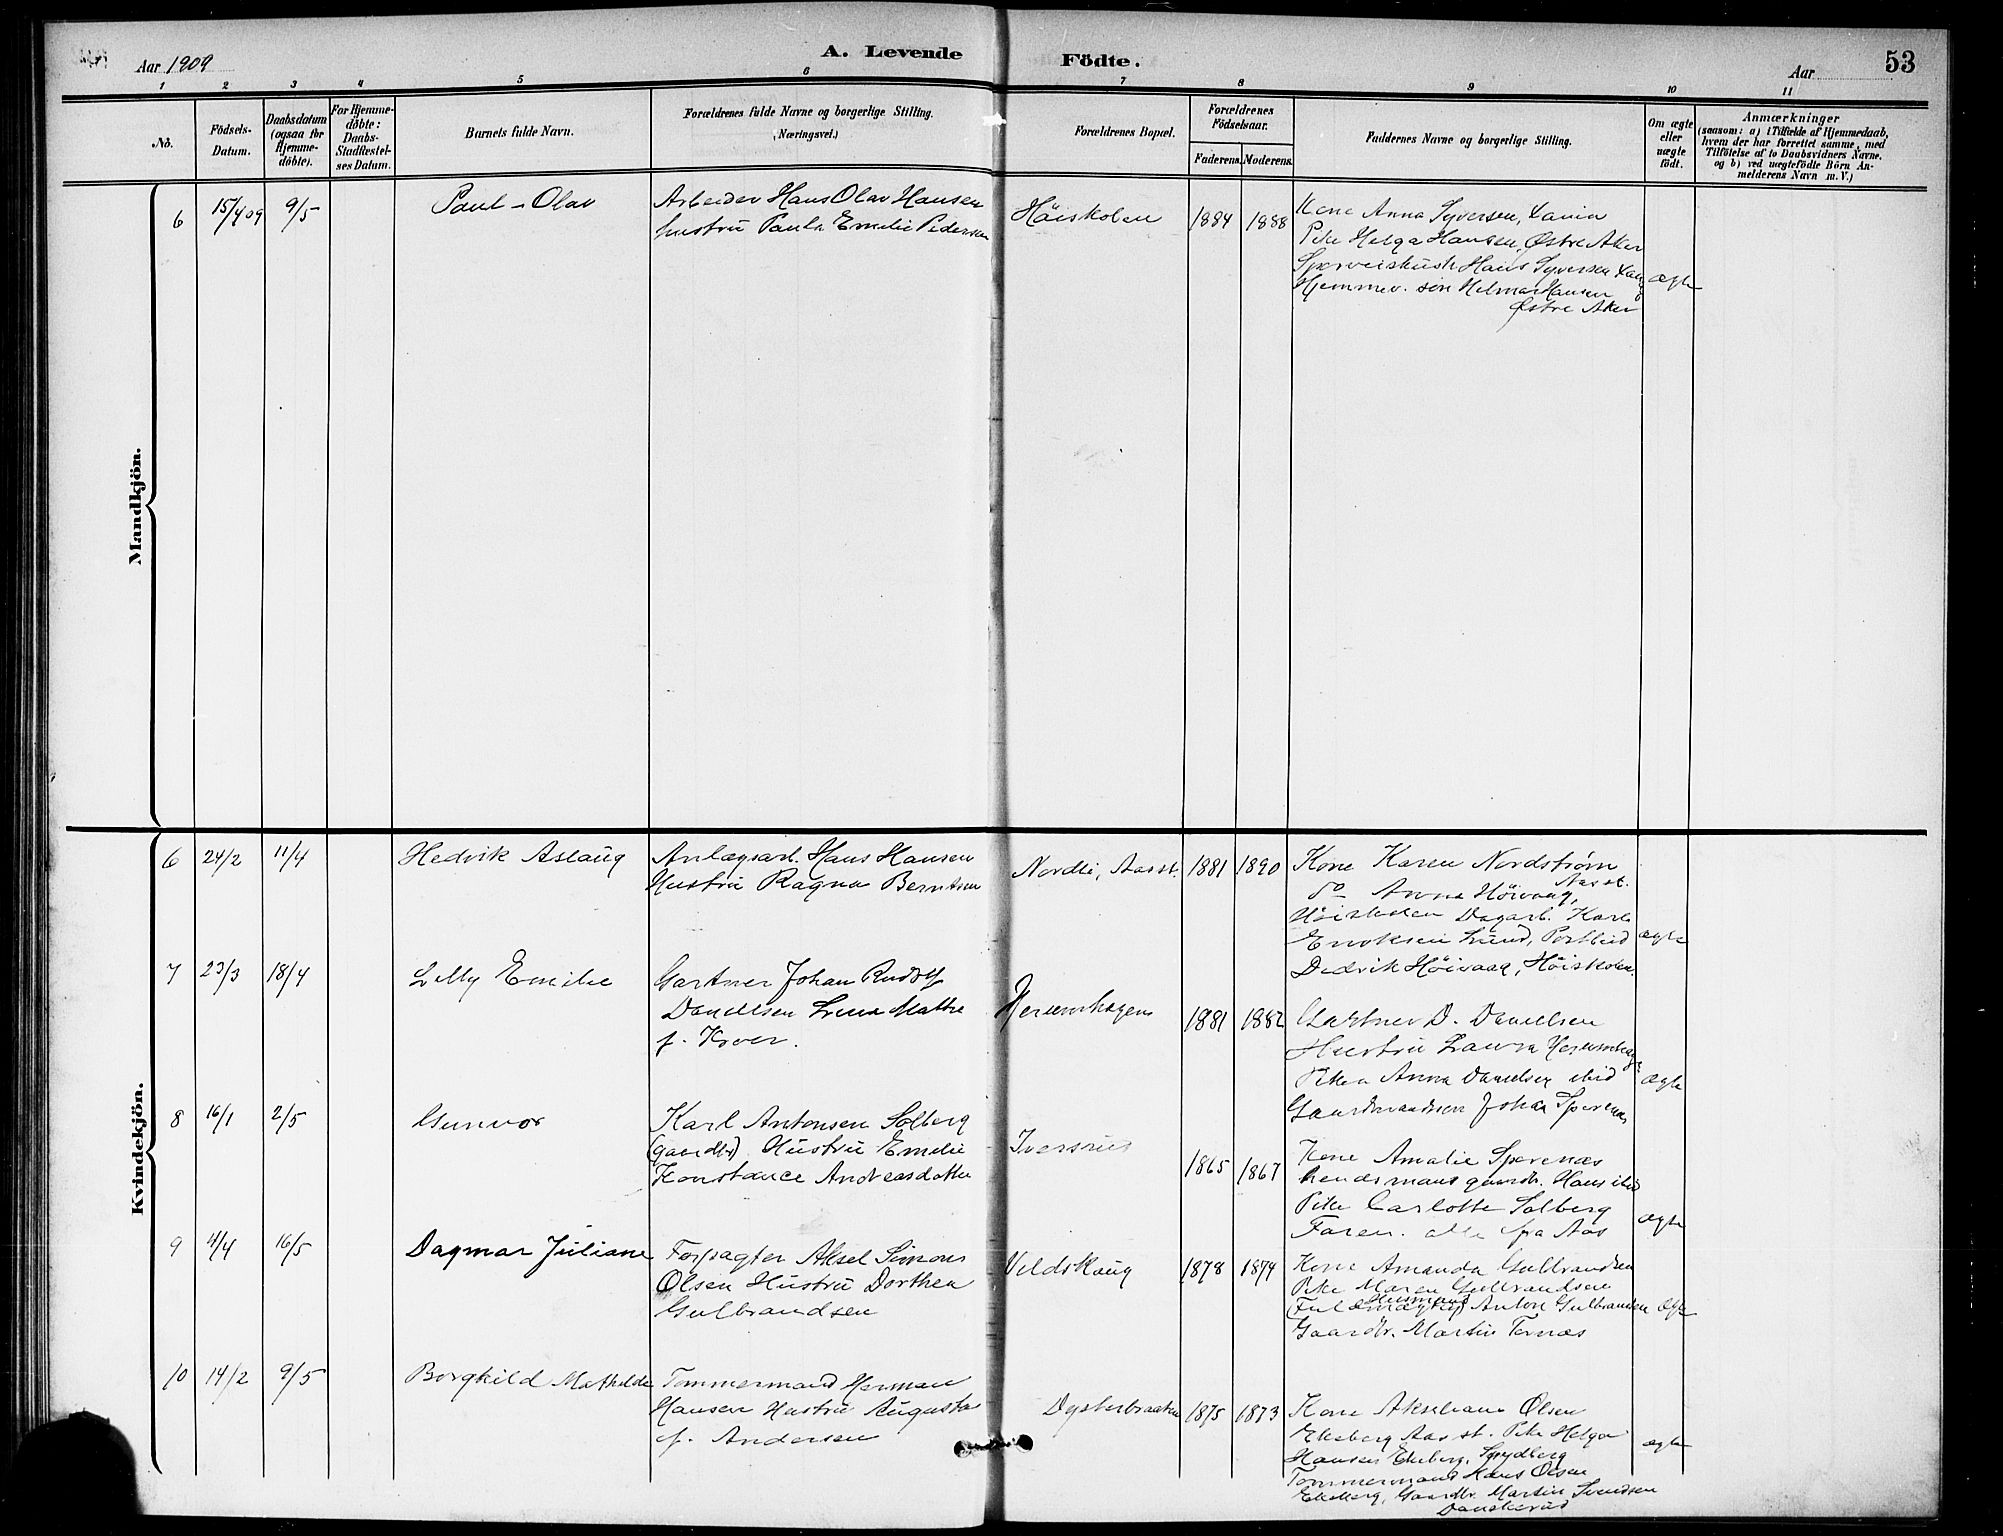 Aar 1909
A. Levende
Födte.
Aar
53
1 2 3 4 5 6 7 8 9 10 11
No.
Födsels-
Datum.
Daabsdatum
(ogsaa for
Hjemme-
döbte).
For Hjemme-
döbte:
Daabs-
Stadfæstel-
ses Datum.
Barnets fulde Navn.
Forældrenes fulde Navne og borgerlige Stilling.
(Næringsvei.)
Forældrenes Bopæl.
Forældrenes
Födselsaar.
Faderens. Moderens.
Faddernes Navne og borgerlige Stilling.
Om ægte
eller
uægte
födt.
Anmærkninger
(saasom: a) i Tilfælde af Hjemmedaab,
hvem der har forrettet samme, med
Tilföielse af to Daabsvidners Navne,
og b) ved uægtefödte Börn An-
melderens Navn m. V.)
Mandkjön.
6 15/4 09 9/5 Paul-Olav
Arbeider Hans Olav Hansen
hustru Paula Emilie Pedersen
Höiskolen 1884 1888
Kone Anna Syversen,
Pike Helga Hansen, Østre Aker
Hans Syversen
Hjemmev. søn Helmar Hansen
Østre Aker
ægte
Kvindekjön.
6 24/2 11/4 Hedvik Aslaug
Anlægsarb. Hans Hansen
Hustru Ragna Berntsen
Nordli, Aas st. 1881 1890
Kone Karen Nordstrøm
Aas st.
do Anna Höivaag,
Höiskolen Dagarb. Karl
Eriksen Lund, Postbud
Didrik Höivaag, Höiskolen
ægte
7 23/3 18/4 Lilly Emilie
Gartner Johan Rudolf
Danielsen Mathea
f. Kroer.
1881 1882
Gartner D. Danielsen
Hustru Laura
Piken Anna Danielsen ibid
Gaardmandssøn Johan Sperenæs
ægte
8 16/1 2/5 Gunvor
Karl Antonsen Solberg
(gaardbr) Hustru Emilie
Konstance Andreasdatter
Iversrud
1865 1867
Kone Amalie Sperenæs
gaardbr. Hans ibid
Pike Carlotte Solberg
Faren. alle fra Aas
ægte
9 4/4 16/5 Dagmar Juliane
Forpagter Aksel Simon
Olsen Hustru Dorthea
Gulbrandsen
Vildskaug 1878 1879
Kone Amanda Gulbrandsen
Pike Maren Gulbrandsen
Husmand
Anton Gulbrandsen ægte
Gaardbr. Martin Tornæs
10 14/2 9/5 Borghild Mathilde
Tømmermand Herman
Hansen Hustru Augusta
f. Andersen
Dysterbraaten 1875 1873
Kone Akseliane Olsen
Ekeberg Aas st. Pike Helga
Hansen Ekeberg, Spydberg
Tømmermand Hans Olsen
Ekeberg, Gaardbr. Martin Svendsen
Danskerud
ægte